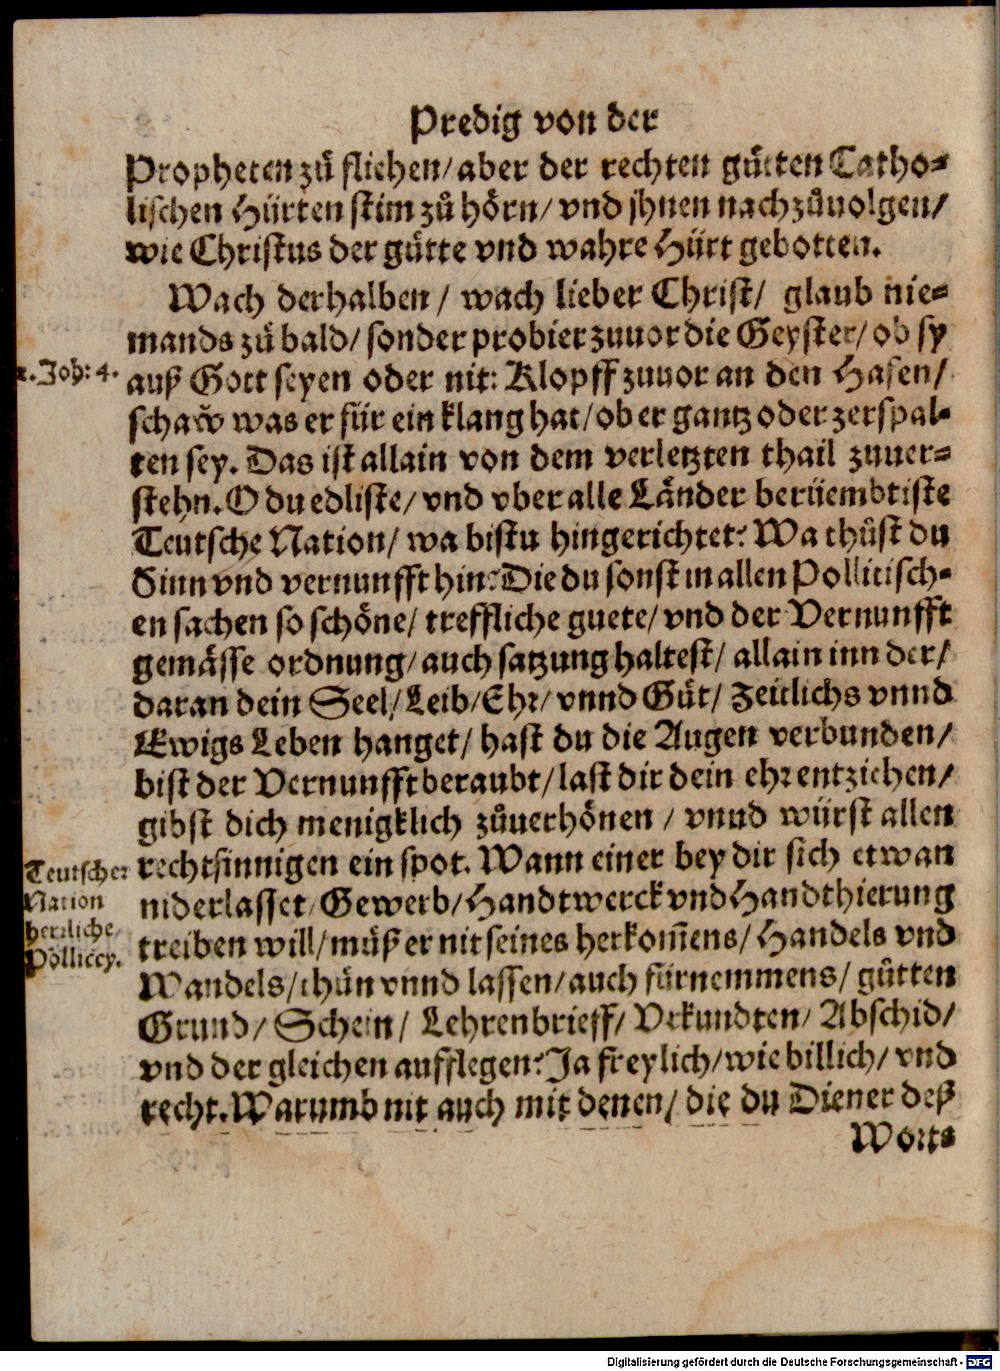 Predig von der
Propheten zů fliehen/ aber der rechten gůtten Catho-
lischen Hürten stim zů hörn/ vnd jhnen nach zůuolgen/
wie Christus der gůtte vnd wahre Hürt gebotten.
Wach derhalben / wach lieber Christ/ glaub nie-
mands zů bald/ sonder probier zuuor die Geyster/ ob sy
1. Joh: 4.
auß Gott seyen oder nit: Klopff zuuor an den Hafen/
schaw̃ was er für ein klang hat/ ob er gantz oder zerspal-
ten sey. Das ist allain von dem verletzten thail zuuer-
stehn. O du edliste/ vnd vber alle Länder berüembtiste
Teutsche Nation/ wa bistu hingerichtet? Wa thůst du
Sinn vnd vernunfft hin? Die du sonst in allen Pollitisch-
en sachen so schöne/ treffliche guete/ vnd der Vernunfft
gemässe ordnung/ auch satzung haltest/ allain inn der/
daran dein Seel/ Leib/ Ehr/ vnnd Gůt/ Zeitlichs vnnd
Ewigs Leben hanget/ hast du die Augen verbunden/
bist der Vernunfft beraubt/ last dir dein ehr entziehen/
gibst dich menigklich zůuerhönen / vnnd würst allen
Teutscher
Nation
herrliche
Pollicey.
rechtsinnigen ein spot. Wann einer bey dir sich etwan
niderlasset/ Gewerb/ Handtwerck vnd Handthierung
treiben will/ můß er nit seines herkom̃ens/ Handels vnd
Wandels/ thůn vnnd lassen/ auch fürnemmens/ gůtten
Grund/ Schein/ Lehrenbrieff/ Vrkundten/ Abschid/
vnd der gleichen aufflegen? Ja freylich/ wie billich/ vnd
recht. Warumb nit auch mit denen/ die du Diener deß
Worts
Digitalisierung gefördert durch die Deutsche Forschungsgemeinschaft - DFG